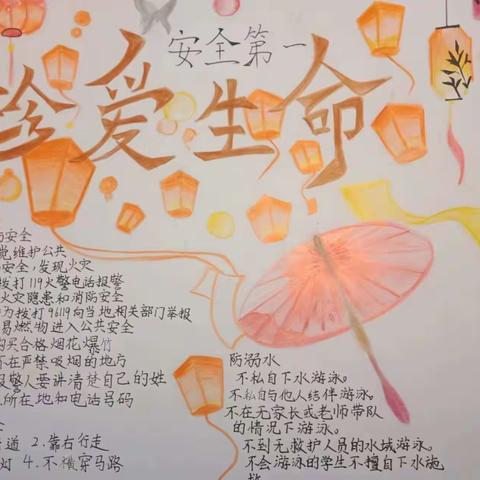 安全第一
珍爱生命
安全
觉维护公共
安全,发现火灾
拨打119火警电话报警
火灾隐患和消防安全
为拨打96119向当地相关部门举报
易燃物进入公共安全
购买合格烟花爆竹
在严禁吸烟的地方
报警人要讲清楚自己的姓
所在地和电话号码
道 2.靠右行走
灯 4.不横穿马路
防溺水
不私自下水游泳。
不私自与他人结伴游泳。
不在无家长或老师带队
的情况下游泳。
不到无救护人员的水域游泳。
不会游泳的学生不擅自下水施